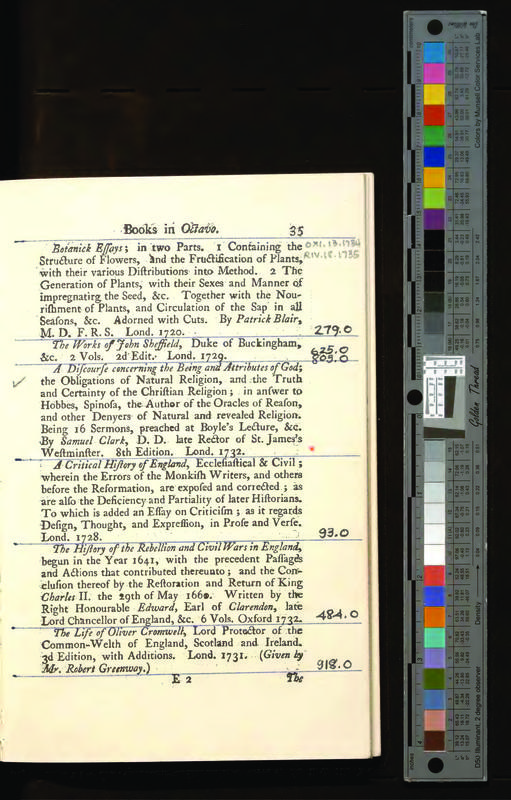 Books in Octavo. 35
Botanick Eſſays; in two Parts. 1 Containing the
Structure of Flowers, and the Fructification of Plants,
with their various Diſtributions into Method. 2 The
Generation of Plants, with their Sexes and Manner of
impregnating the Seed, &c. Together with the Nou-
riſhment of Plants, and Circulation of the Sap in all
Seaſons, &c. Adorned with Cuts. By Patrick Blair,
M. D. F. R. S. Lond. 1720. 279.0
The Works of John Sheffield, Duke of Buckingham,
&c. 2 Vols. 2d Edit. Lond. 1729. 625.0
803.0
A Diſcourſe concerning the Being and Attributes of God;
the Obligations of Natural Religion, and the Truth
and Certainty of the Chriſtian Religion; in anſwer to
Hobbes, Spinoſa, the Author of the Oracles of Reaſon,
and other Denyers of Natural and revealed Religion.
Being 16 Sermons, preached at Boyle's Lecture, &c.
By Samuel Clark, D. D. late Rector of St. James's
Weſtminſter. 8th Edition. Lond. 1732.
A Critical Hiſtory of England, Eccleſiaſtical & Civil;
wherein the Errors of the Monkiſh Writers, and others
before the Reformation, are expoſed and corrected; as
are alſo the Deficiency and Partiality of later Hiſtorians.
To which is added an Eſſay on Criticiſm; as it regards
Deſign, Thought, and Expreſſion, in Proſe and Verſe.
Lond. 1728. 93.0
The Hiſtory of the Rebellion and Civil Wars in England,
begun in the Year 1641, with the precedent Paſſages
and Actions that contributed thereunto; and the Con-
cluſion thereof by the Reſtoration and Return of King
Charles II. the 29th of May 1660. Written by the
Right Honourable Edward, Earl of Clarendon, late
Lord Chancellor of England, &c. 6 Vols. Oxford 1732. 484.0
The Life of Oliver Cromwell, Lord Protector of the
Common-Welth of England, Scotland and Ireland.
3d Edition, with Additions. Lond. 1731. (Given by
Mr. Robert Greenway.) 918.0
E 2 The
Colors by Munsell Color Services Lab
Golden Thread
Density
D50 Illuminant, 2 degree observer